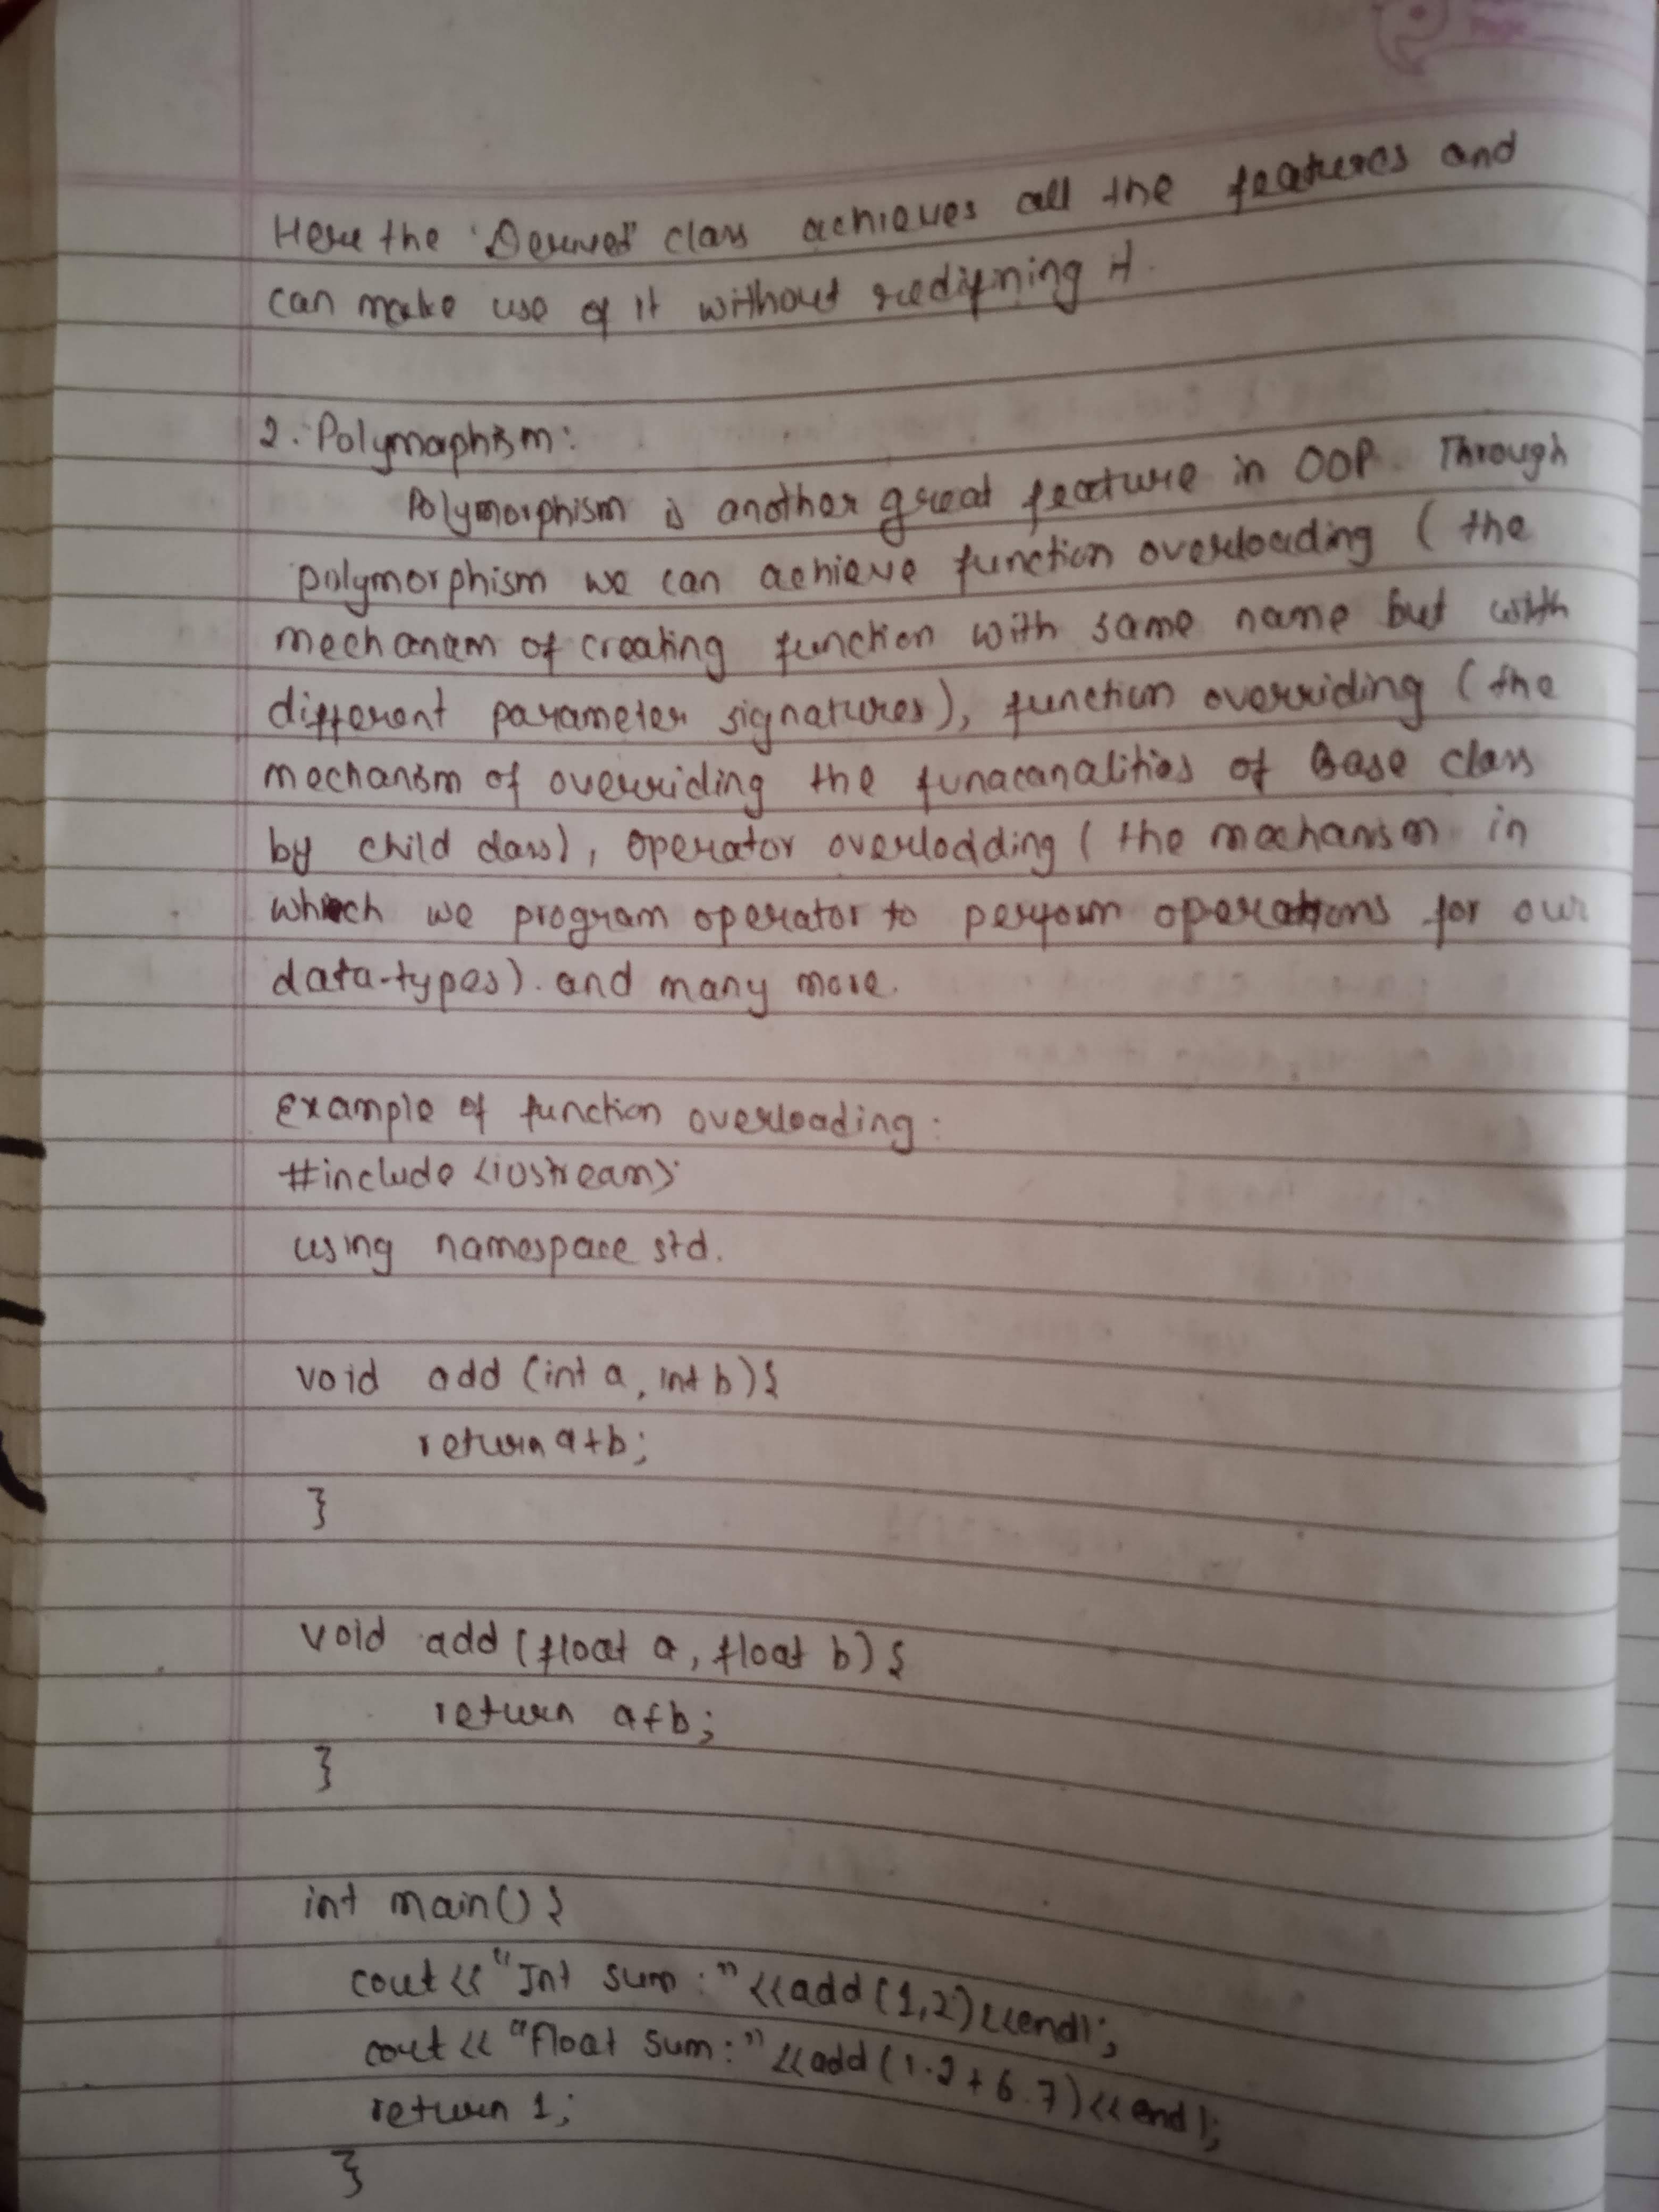 Page
Here the "Derived" class achieves all the features and
can make use of it without redifining it.
2. Polymorphism:
Polymorphism is another great feature in OOP. Through
polymorphism we can achieve function overloading ( the
mechanism of creating function with same name but with
different parameter signatures), function overriding ( the
mechanism of overriding the funacanalities of Base class
by child class), operator overlodding ( the mechanism in
which we program operator to perform operations for our
data-types). and many more.
Example of function overloading:
#include <iostream>
using namespace std.
void add (int a, int b){
return a+b;
}
void add (float a, float b) {
return a+b;
}
int main() {
cout << "Int sum :" <<add (1,2) <<endl;
cout << "Float sum:" <<add (1.2 + 6.7) << endl;
return 1;
}